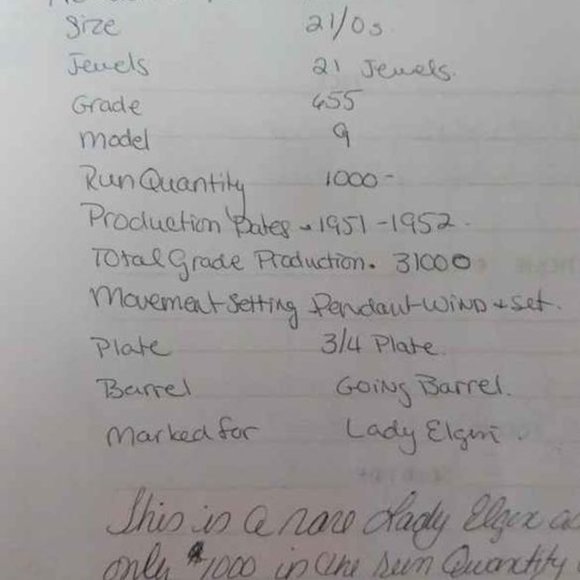 Size 21/0s.
Jewels 21 Jewels.
Grade 655
Model 9
Run Quantity 1000-
Production Dates - 1951-1952.
Total Grade Production. 31000
Movement Setting Pendant-Wind + Set.
Plate 3/4 Plate.
Barrel Going Barrel.
Marked for Lady Elgin.
This is a rare Lady Elgin
only 1000 in the run Quantity